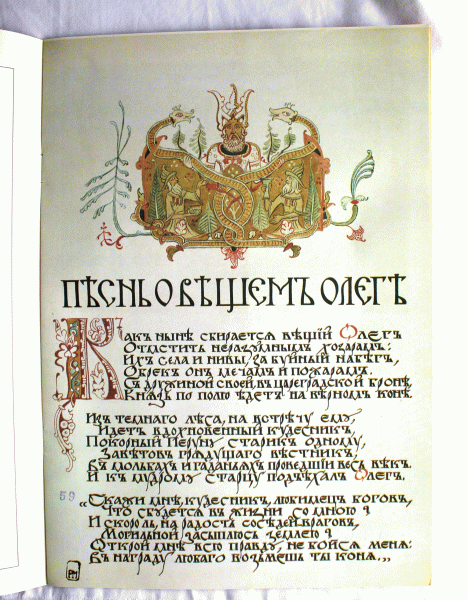 ПѢСНЬ О ВѢЩЕМЪ ОЛЕГѢ
Какъ нынѣ сбирается вѣщій Олегъ
Отмстить неразумнымъ хозарамъ:
Ихъ села и нивы, за буйный набѣгъ,
Обрекъ онъ мечамъ и пожарамъ.
Съ дружиной своей, въ цареградской бронѣ,
Князь по полю ѣдетъ на вѣрномъ конѣ.
Изъ темнаго лѣса, на встрѣчу ему,
Идетъ вдохновенный кудесникъ,
Покорный Перуну старикъ одному,
Завѣтовъ грядущаго вѣстникъ,
Въ мольбахъ и гаданьяхъ проведшій весь вѣкъ.
И къ мудрому старцу подъѣхалъ Олегъ.
59
„Скажи мнѣ, кудесникъ, любимецъ боговъ,
Что сбудется въ жизни со мною?
И скоро ль, на радость сосѣдей враговъ,
Могильной засыплюсь землею?
Открой мнѣ всю правду, не бойся меня:
Въ награду любаго возьмешь ты коня.„